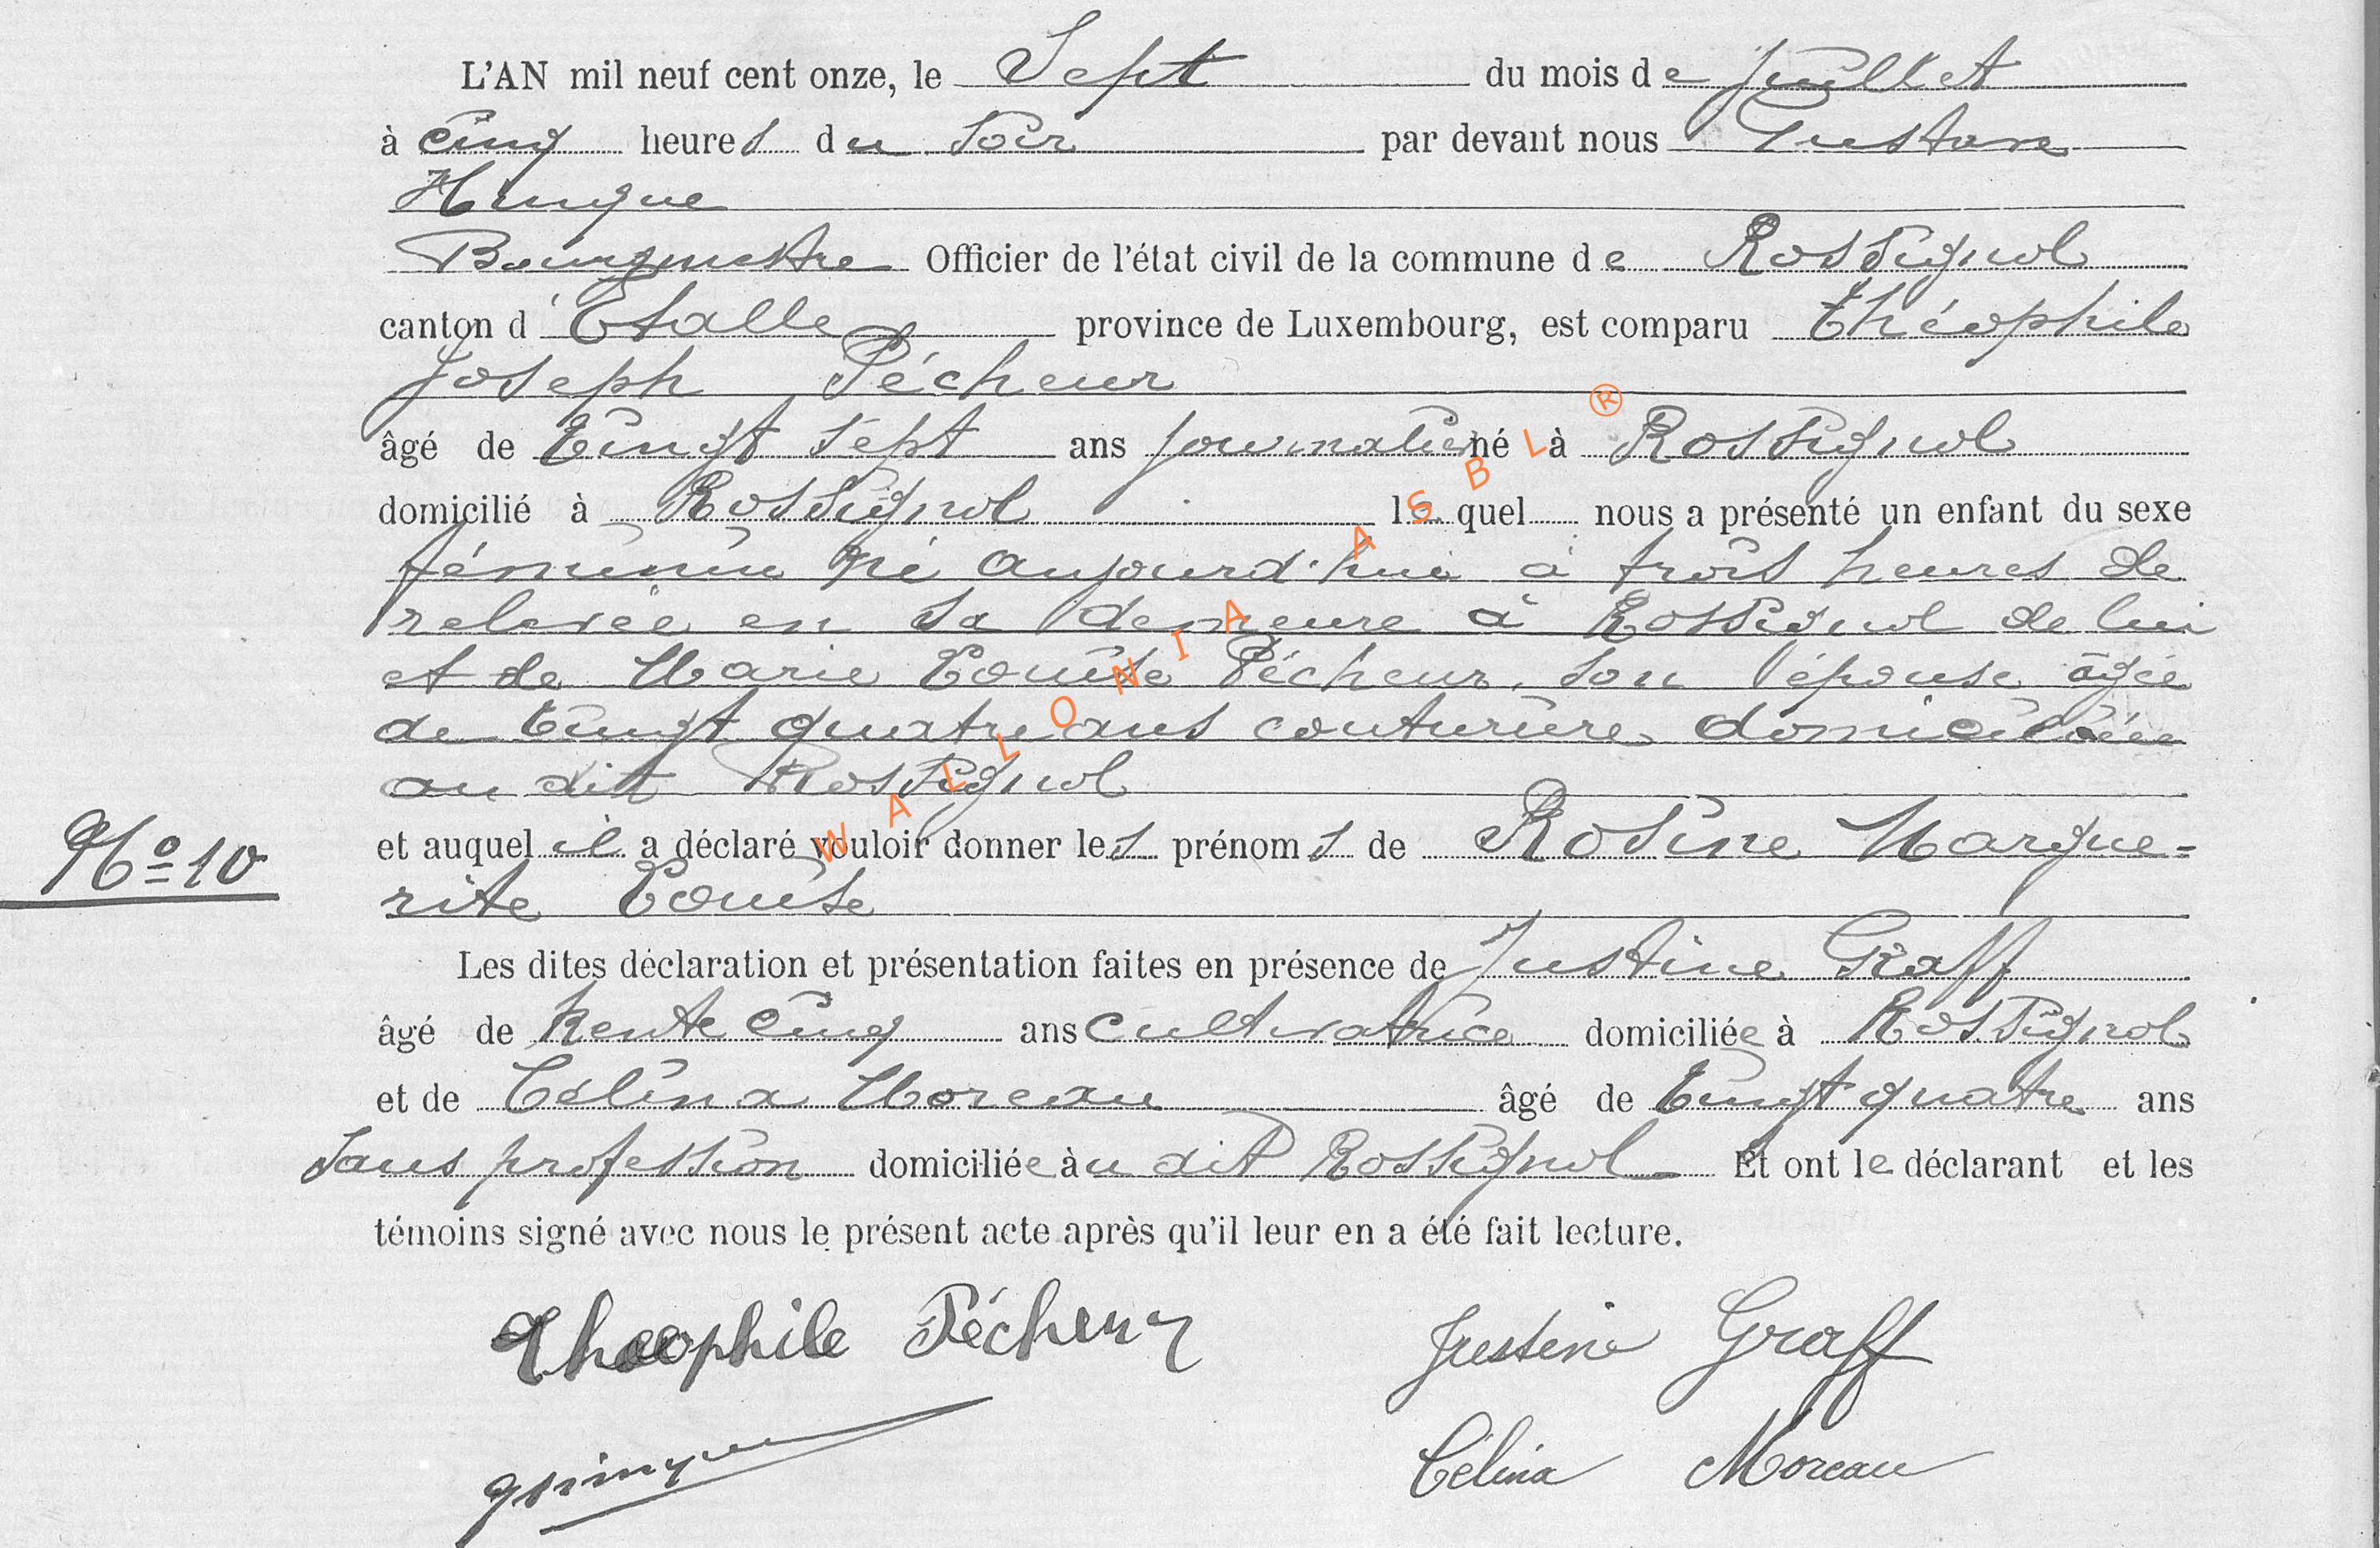 L'AN mil neuf cent onze, le Sept du mois de Juillet
à cinq heures du soir par devant nous Gustave
Hinque
Bourgmestre Officier de l'état civil de la commune de Rossignol
canton d'Etalle province de Luxembourg, est comparu Théophile
Joseph Pécheur
âgé de Vingt sept ans journalier né à Rossignol
domicilié à Rossignol lequel nous a présenté un enfant du sexe
féminin né aujourd'hui à trois heures de
relevée en sa demeure à Rossignol de lui
et de Marie Louise Pécheur, son épouse âgée
de Vingt quatre ans couturière domiciliée
au dit Rossignol
N° 10
et auquel il a déclaré vouloir donner les prénoms de Rosine Margue-
rite Louise
Les dites déclaration et présentation faites en présence de Justine Graff
âgé de trente cinq ans cultivatrice domiciliée à Rossignol
et de Célina Moreau âgé de Vingt quatre ans
Sans profession domiciliée au dit Rossignol Et ont le déclarant et les
témoins signé avec nous le présent acte après qu'il leur en a été fait lecture.
Théophile Pécheur Justine Graff
Célina Moreau
WALLONIA ASBL ®